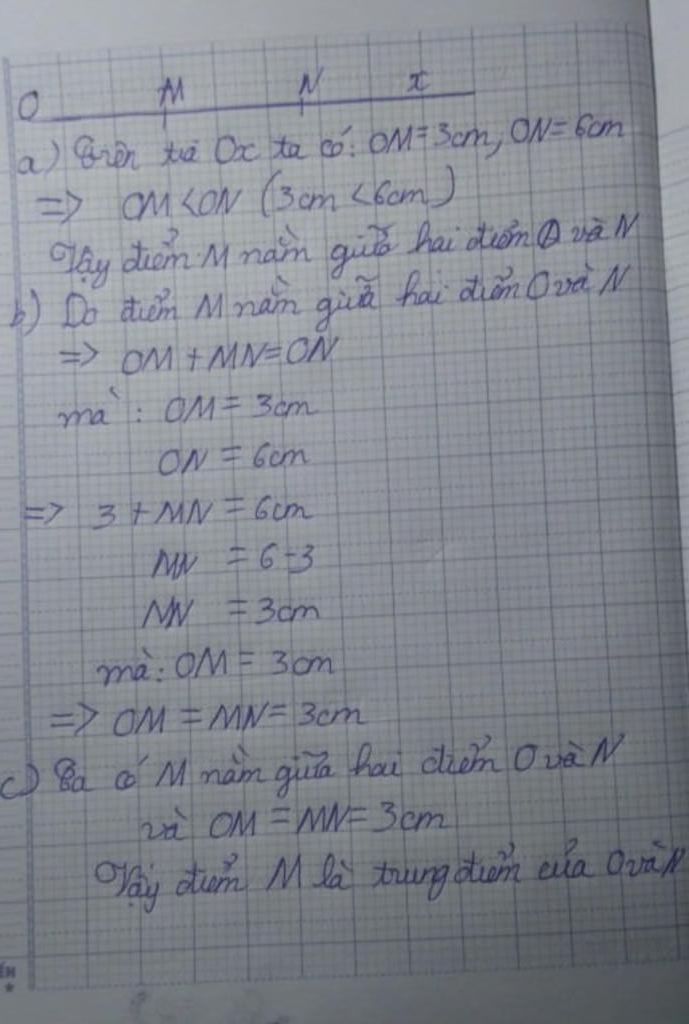 O M N x
a) Trên tia Ox ta có: OM = 3cm, ON = 6cm
=> OM < ON (3cm < 6cm)
Vậy điểm M nằm giữa hai điểm O và N
b) Do điểm M nằm giữa hai điểm O và N
=> OM + MN = ON
mà : OM = 3cm
ON = 6cm
=> 3 + MN = 6cm
MN = 6-3
MN = 3cm
mà: OM = 3cm
=> OM = MN = 3cm
c) Ta có M nằm giữa hai điểm O và N
và OM = MN = 3cm
Vậy điểm M là trung điểm của O và N